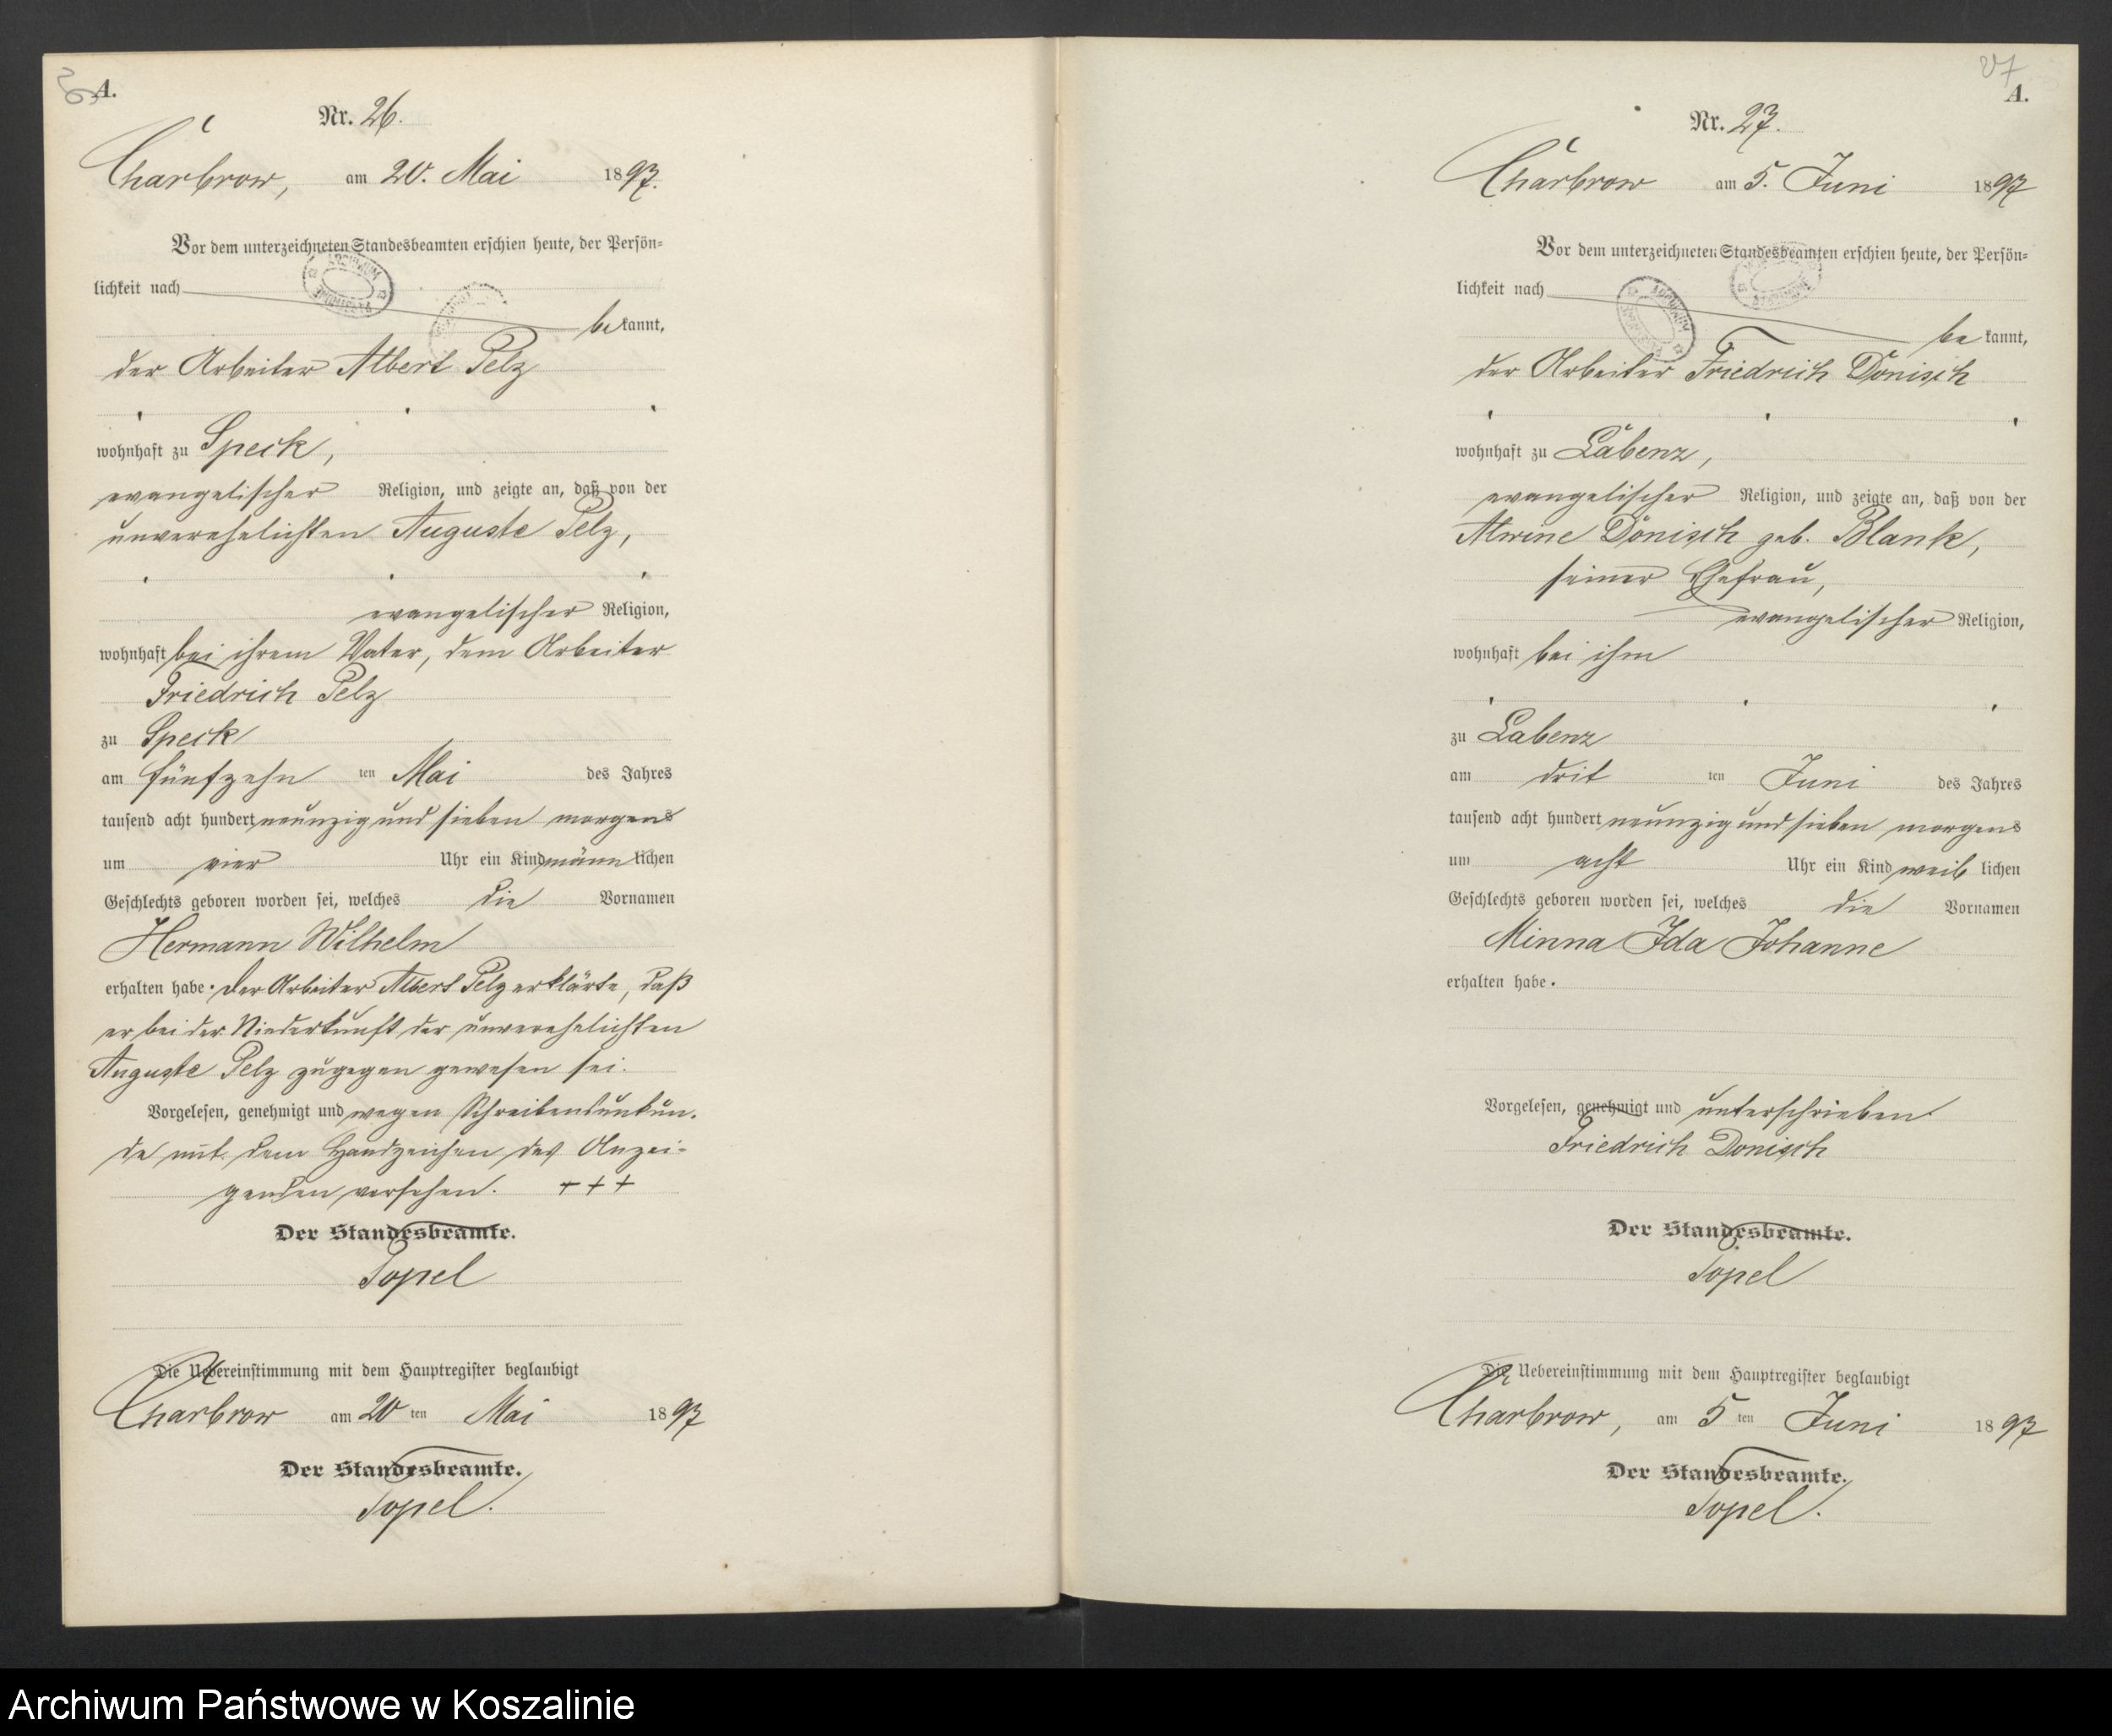 A.
Nr. 26.
Charbrow, am 20. Mai 1897.
Vor dem unterzeichneten Standesbeamten erschien heute, der Persön=
lichkeit nach
be kannt,
der Arbeiter Albert Pelz
wohnhaft zu Speck,
evangelischer Religion, und zeigte an, daß von der
unverehelichten Auguste Pelz,
evangelischer Religion,
wohnhaft bei ihrem Vater, dem Arbeiter
Friedrich Pelz
zu Speck
am fünfzehn ten Mai des Jahres
tausend acht hundert neunzig und sieben morgens
um vier Uhr ein Kind männ lichen
Geschlechts geboren worden sei, welches die Vornamen
Hermann Wilhelm
erhalten habe. Der Arbeiter Albert Pelz erklärte, daß
er bei der Niederkunft der unverehelichten
Auguste Pelz zugegen gewesen sei.
Vorgelesen, genehmigt und wegen Schreibensunkun-
de mit dem Handzeichen des Anzei-
genden versehen. +++
Der Standesbeamte.
Topel
Die Uebereinstimmung mit dem Hauptregister beglaubigt
Charbrow am 20 ten Mai 1897
Der Standesbeamte.
Topel.
27
A.
Nr. 27.
Charbrow am 5. Juni 1897
Vor dem unterzeichneten Standesbeamten erschien heute, der Persön=
lichkeit nach
be kannt,
der Arbeiter Friedrich Donisch
wohnhaft zu Labenz,
evangelischer Religion, und zeigte an, daß von der
Alwine Donisch geb. Blank,
seiner Ehefrau,
evangelischer Religion,
wohnhaft bei ihm
zu Labenz
am drit ten Juni des Jahres
tausend acht hundert neunzig und sieben morgens
um acht Uhr ein Kind weib lichen
Geschlechts geboren worden sei, welches die Vornamen
Minna Ida Johanne
erhalten habe.
Vorgelesen, genehmigt und unterschrieben
Friedrich Donisch
Der Standesbeamte.
Topel
Die Uebereinstimmung mit dem Hauptregister beglaubigt
Charbrow, am 5 ten Juni 1897
Der Standesbeamte.
Topel.
Archiwum Państwowe w Koszalinie